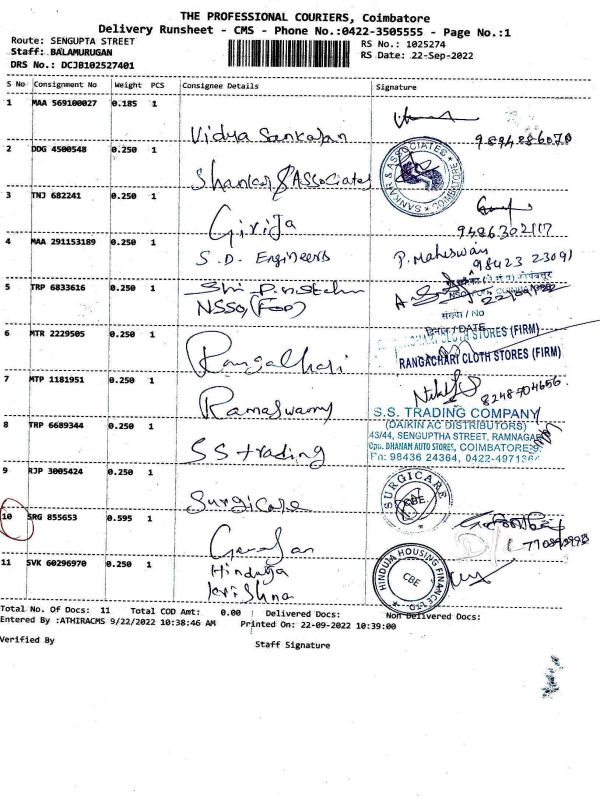 THE PROFESSIONAL COURIERS, Coimbatore
Delivery Runsheet - CMS - Phone No.:0422-3505555 - Page No.:1
Route: SENGUPTA STREET
Staff: BALAMURUGAN
DRS No.: DCJB102527401
RS No.: 1025274
RS Date: 22-Sep-2022
S No Consignment No Weight PCS Consignee Details Signature
1 MAA 569100027 0.185 1
Vidya Sankaran
9894886070
2 DDG 4500548 0.250 1
Shankar & Associates
SANKAR & ASSOCIATES COIMBATORE
3 TNJ 682241 0.250 1
Girija
9486302117
4 MAA 291153189 0.250 1
S.D. Engineers
P. Maheswari
98423 23091
5 TRP 6833616 0.250 1
NSSO, (FOD)
संख्या / NO
दिनांक / DATE
6 MTR 2229505 0.250 1
CLOTH STORES (FIRM)
RANGACHARI CLOTH STORES (FIRM)
7 MTP 1181951 0.250 1
Ramaswamy
8248504656
8 TRP 6689344 0.250 1
S S trading
S.S. TRADING COMPANY
(DAIKIN AC DISTRIBUTORS)
43/44, SENGUPTHA STREET, RAMNAGAR
Opp. DHANAM AUTO STORES, COIMBATORE-9.
Ph: 98436 24364, 0422-4971364
9 RJP 3005424 0.250 1
Surgicare
SURGICARE CBE
10 SRG 855653 0.595 1
11 SVK 60296970 0.250 1
Hinduja
krishna
HINDUJA HOUSING FINANCE LTD. CBE
Total No. Of Docs: 11 Total COD Amt: 0.00 | Delivered Docs: Non Delivered Docs:
Entered By :ATHIRACMS 9/22/2022 10:38:46 AM Printed On: 22-09-2022 10:39:00
Verified By Staff Signature